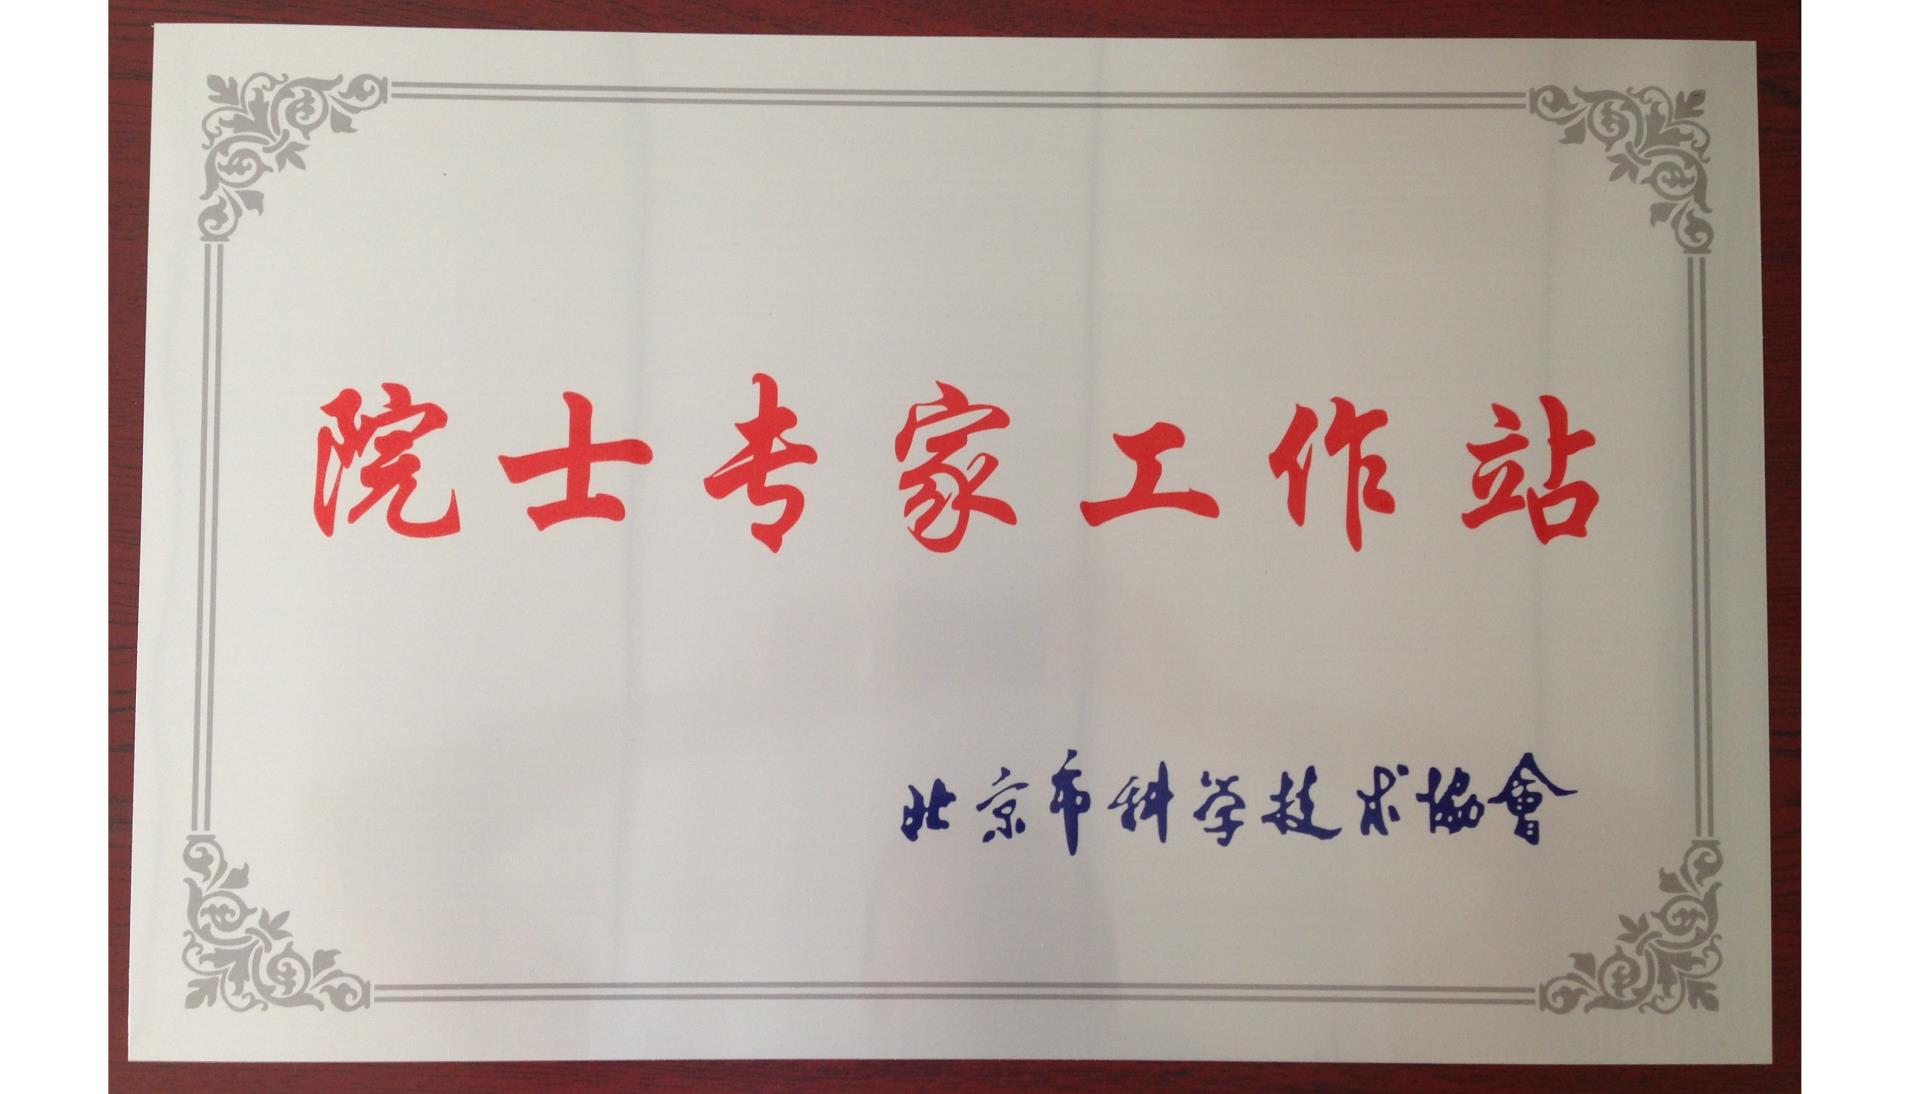 院士专家工作站
北京市科学技术協會